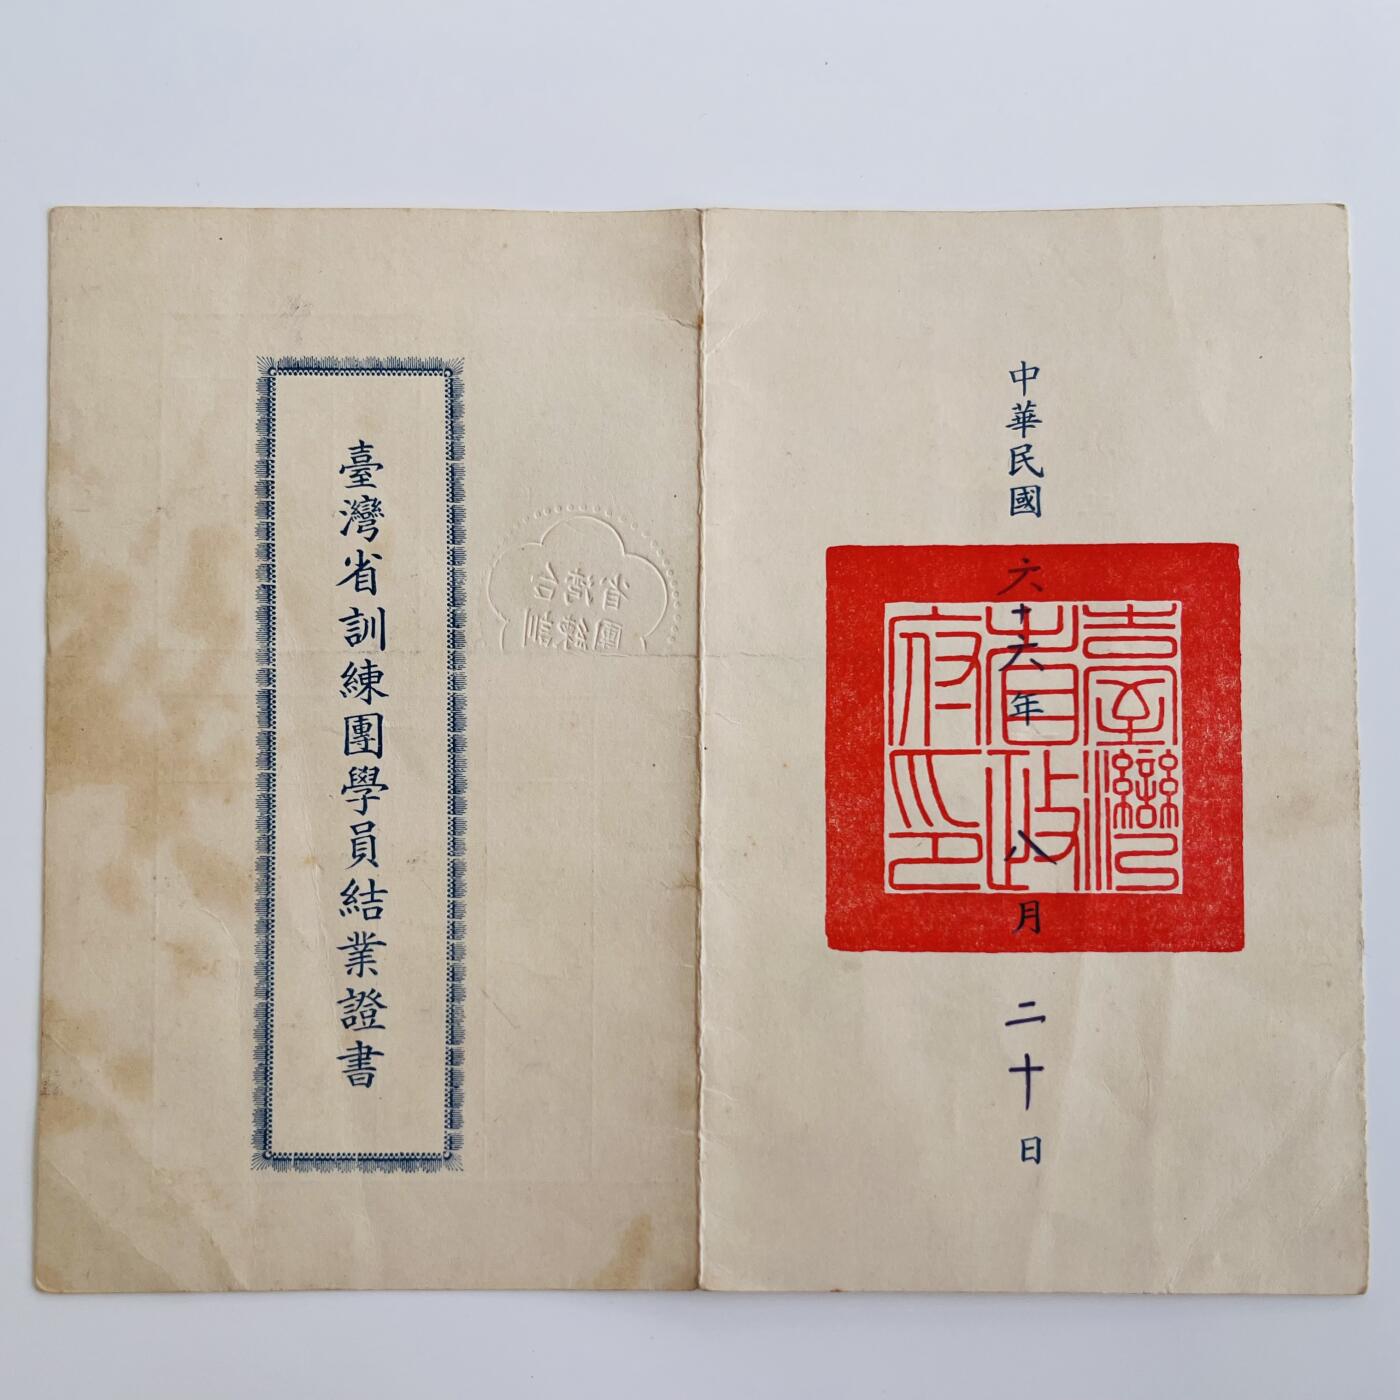 臺灣省訓練團學員結業證書
台灣省
訓練團
中華民國六十六年八月二十日
臺灣
省政
府印